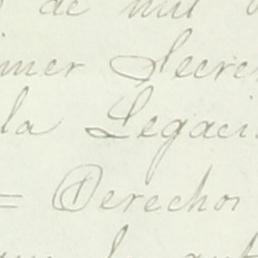 de mil
imer Secre
la Legaci
= Derechos